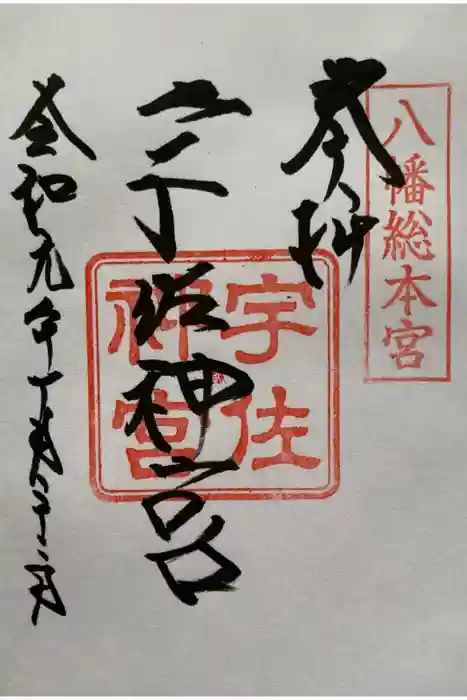 八幡総本宮
奉拝
宇佐神宮
宇佐
神宮
令和元年十月二十二日